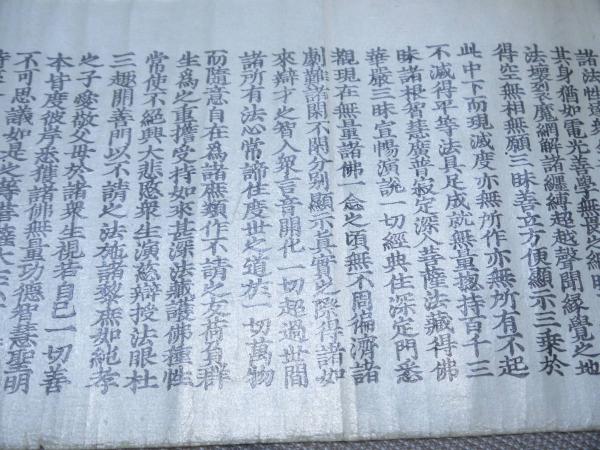 諸法性達衆生
其身猶如電光善學無畏之網曉
法壞裂魔網解諸纏縛超越聲聞縁覺之地
得空無相無願三昧善立方便顯示三乗於
此中下而現滅度亦無所作亦無所有不起
不滅得平等法具足成就無量捴持百千三
昧諸根智慧廣普寂定深入菩薩法藏得佛
華嚴三昧宣暢演說一切經典住深定門悉
覩現在無量諸佛一念之頃無不周徧濟諸
劇難諸閑不閑分別顯示真實之際得諸如
來辯才之智入衆言音開化一切超過世間
諸所有法心常諦住度世之道於一切萬物
而隨意自在為諸庶類作不請之友荷負群
生為之重擔受持如來甚深法藏護佛種性
常使不絕興大悲愍衆生演慈辯授法眼杜
三趣開善門以不請之法施諸黎庶如純孝
之子愛敬父母於諸衆生視若自己一切善
本皆度彼岸悉獲諸佛無量功德智慧聖明
不可思議如是之等菩薩大士